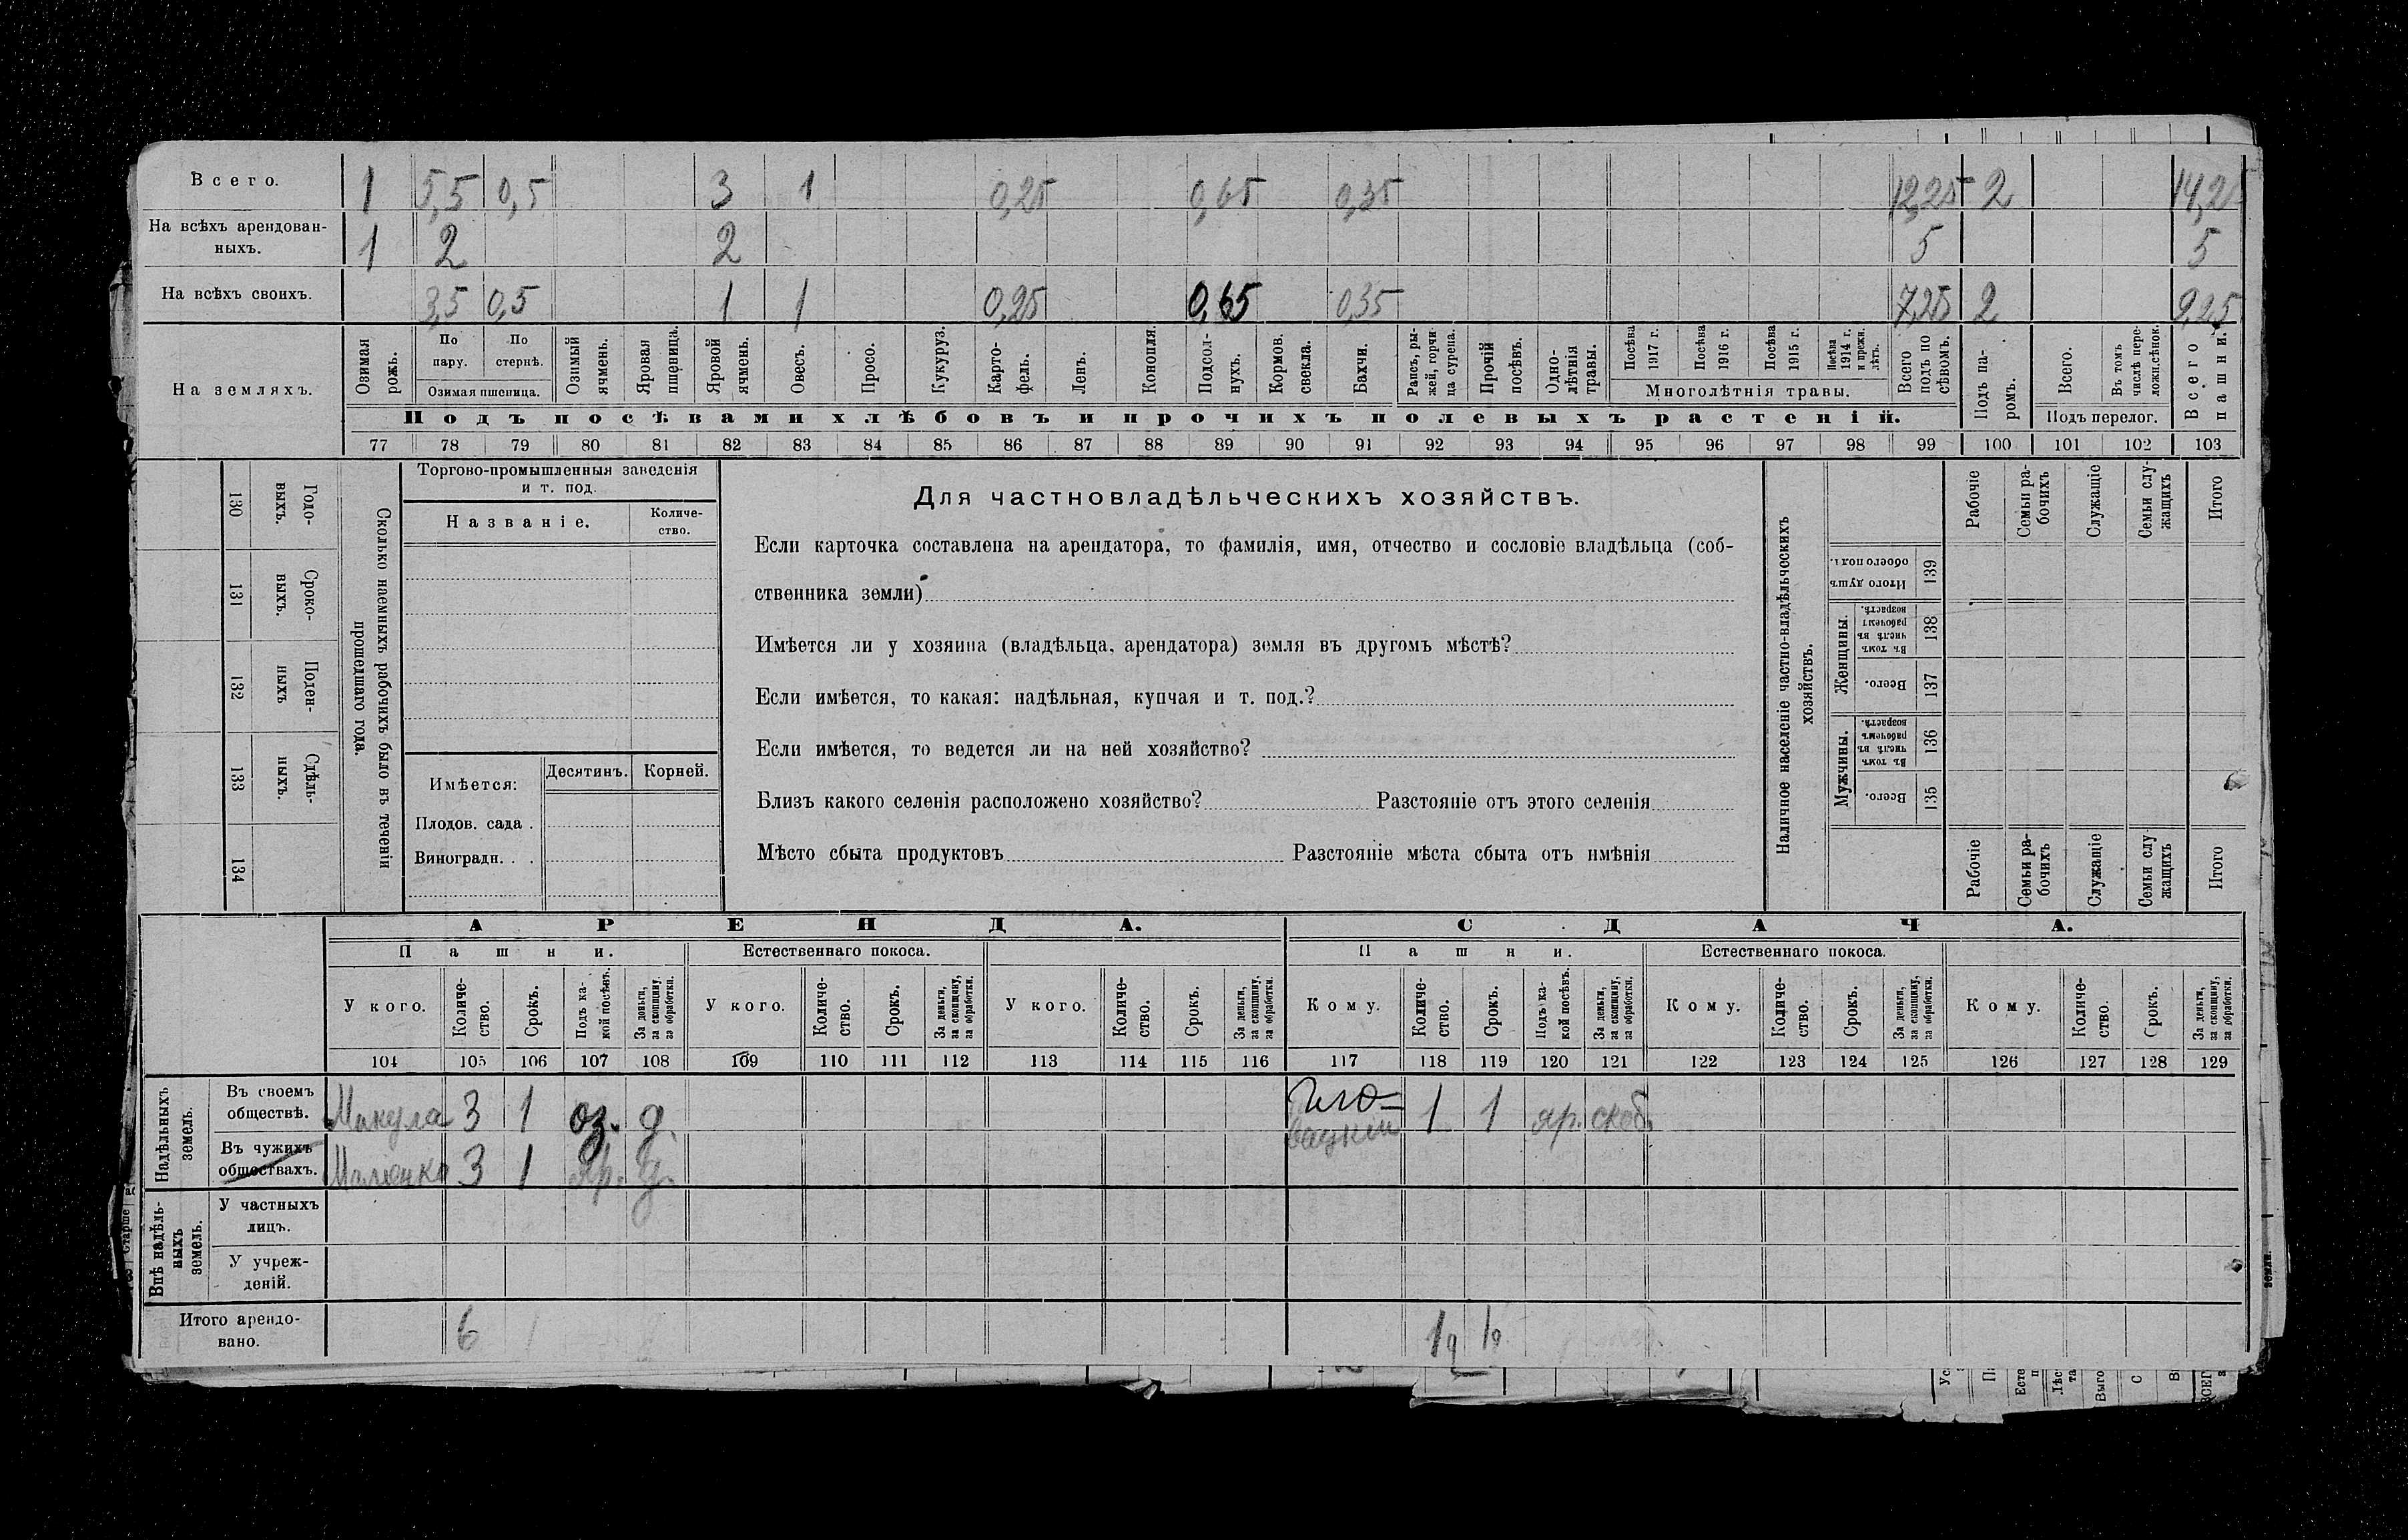 Всего. 1 5,5 0,5 3 1 0,25 0,65 0,35 12,25 2 14,25
На всѣхъ арендован-
ныхъ. 1 2 2 5 5
На всѣхъ своихъ. 3,5 0,5 1 1 0,25 0,65 0,35 7,25 2 9,25
На земляхъ.
Озимая рожь.
По пару.
По стернѣ.
Озимая пшеница.
Озимый ячмень.
Яровая пшеница.
Яровой ячмень.
Овесъ.
Просо.
Кукуруз.
Карто-
фель.
Ленъ.
Конопля.
Подсол-
нухъ.
Кормов.
свекла.
Бахчи.
Рапсъ, ры-
жей, горчи
ца сурепа.
Прочій
посѣвъ.
Одно-
лѣтнія
травы.
Посѣва
1917 г.
Посѣва
1916 г.
Посѣва
1915 г.
Посѣва
1914 г.
и прежн.
лѣтъ.
Многолѣтнія травы.
Всего
подъ по
сѣвомъ.
Подъ па-
ромъ.
Всего.
Въ томъ
числѣ пере-
ложн.сѣнок.
Подъ перелог.
Всего
пашни.
Подъ посѣвами хлѣбовъ и прочихъ полевыхъ растеній.
77 78 79 80 81 82 83 84 85 86 87 88 89 90 91 92 93 94 95 96 97 98 99 100 101 102 103
130 131 132 133 134
Годо-
выхъ.
Сроко-
выхъ.
Поден-
ныхъ
Сдѣль-
ныхъ.
Сколько наемныхъ рабочихъ было въ теченіи
прошедшаго года.
Торгово-промышленныя заведенія
и т. под.
Названіе.
Количе-
ство.
Имѣется:
Десятинъ. Корней.
Плодов. сада .
Виноградн. . .
Для частновладѣльческихъ хозяйствъ.
Если карточка составлена на арендатора, то фамилія, имя, отчество и сословіе владѣльца (соб-
ственника земли)
Имѣется ли у хозяина (владѣльца, арендатора) земля въ другомъ мѣстѣ?
Если имѣется, то какая: надѣльная, купчая и т. под.?
Если имѣется, то ведется ли на ней хозяйство?
Близъ какого селенія расположено хозяйство? Разстояніе отъ этого селенія
Мѣсто сбыта продуктовъ Разстояніе мѣста сбыта отъ имѣнія
Наличное населеніе частно-владѣльческихъ
хозяйствъ.
Итого душъ
обоего пола.
139
Женщины.
Въ томъ
числѣ въ
рабочемъ
возрастѣ.
138
Всего.
137
Мужчины.
Въ томъ
числѣ въ
рабочемъ
возрастѣ.
136
Всего.
135
Рабочіе
Семьи ра-
бочихъ
Служащіе
Семьи слу-
жащихъ
Итого
Рабочіе
Семьи ра-
бочихъ
Служащіе
Семьи слу
жащихъ
Итого
АРЕНДА. СДАЧА.
Пашни. Естественнаго покоса. Пашни. Естественнаго покоса.
У кого.
Количе-
ство.
Срокъ.
Подъ ка-
кой посѣвъ.
За деньги,
за скопщину,
за обработки.
У кого.
Количе-
ство.
Срокъ.
За деньги,
за скопщину,
за обработки.
У кого.
Количе-
ство.
Срокъ.
За деньги,
за скопщину,
за обработки.
Кому.
Количе-
ство.
Срокъ.
Подъ ка-
кой посѣвъ.
За деньги,
за скопщину,
за обработки.
Кому.
Количе-
ство.
Срокъ.
За деньги,
за скопщину,
за обработки.
Кому.
Количе-
ство.
Срокъ.
За деньги,
за скопщину,
за обработки.
104 105 106 107 108 109 110 111 112 113 114 115 116 117 118 119 120 121 122 123 124 125 126 127 128 129
Надѣльныхъ
земель.
Въ своемъ
обществѣ. Микула 3 1 оз. д. 1 1 яр. скоб.
Въ чужихъ
обществахъ. 3 1 яр. д.
Внѣ надѣль-
ныхъ
земель.
У частныхъ
лицъ.
У учреж-
деній.
Итого арендо-
вано. 6
Старше
земли.
Ус
Есте
Лѣс
та
Выго
С